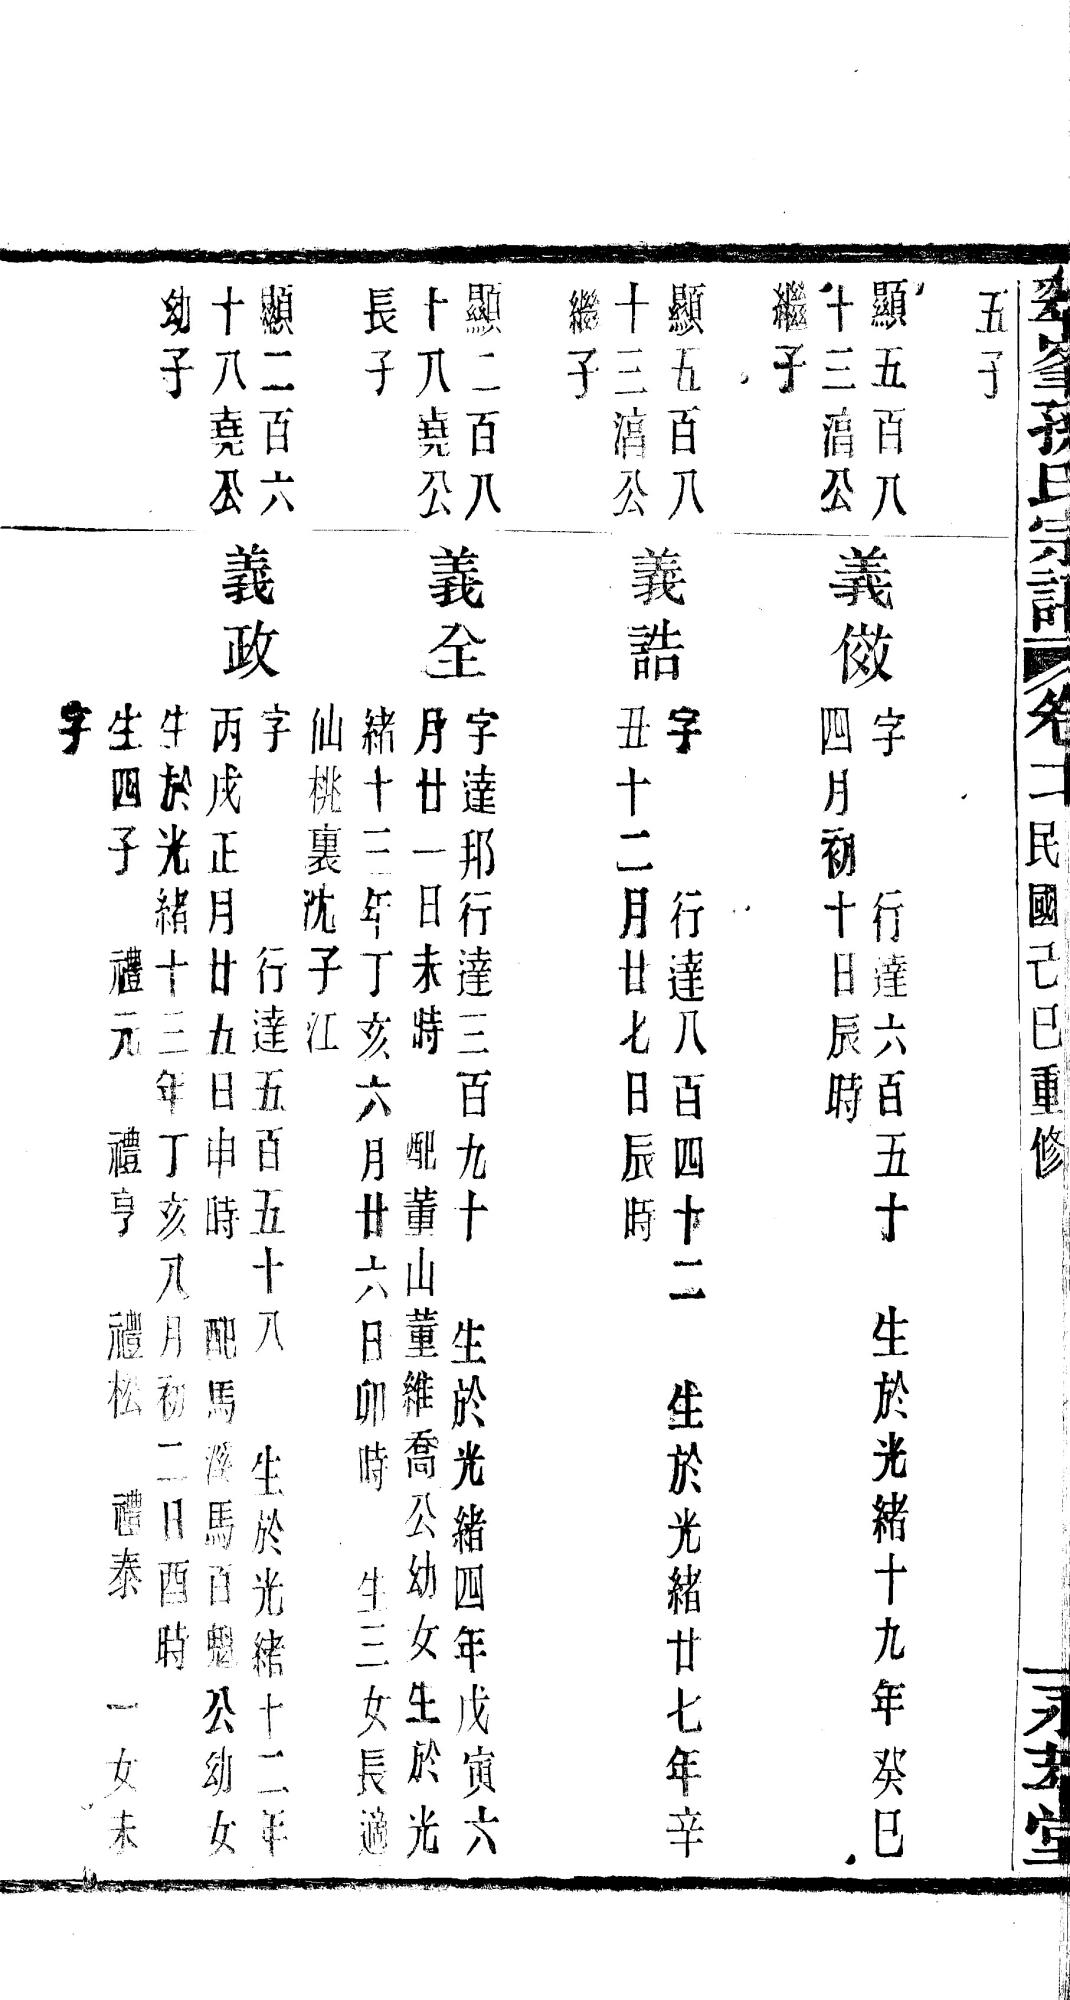 峯孫氏宗譜 卷二 民國己巳重修 堂
五子
顯五百八
十三滈公
繼子
義儆
字 行達六百五十 生於光緒十九年癸巳
四月初十日辰時
顯五百八
十三滈公
繼子
義誥
字 行達八百四十二 生於光緒廿七年辛
丑十二月廿七日辰時
顯二百八
十八堯公
長子
義全
字達邦行達三百九十 生於光緒四年戊寅六
月廿一日未時 配董山董維喬公幼女生於光
緒十三年丁亥六月廿六日卯時 生三女長適
仙桃裏沈子江
顯二百六
十八堯公
幼子
義政
字 行達五百五十八 生於光緒十二年
丙戌正月廿九日申時 配馬溪馬百魁公幼女
生於光緒十三年丁亥八月初二日酉時
生四子 禮元 禮亨 禮松 禮泰 一女未
字